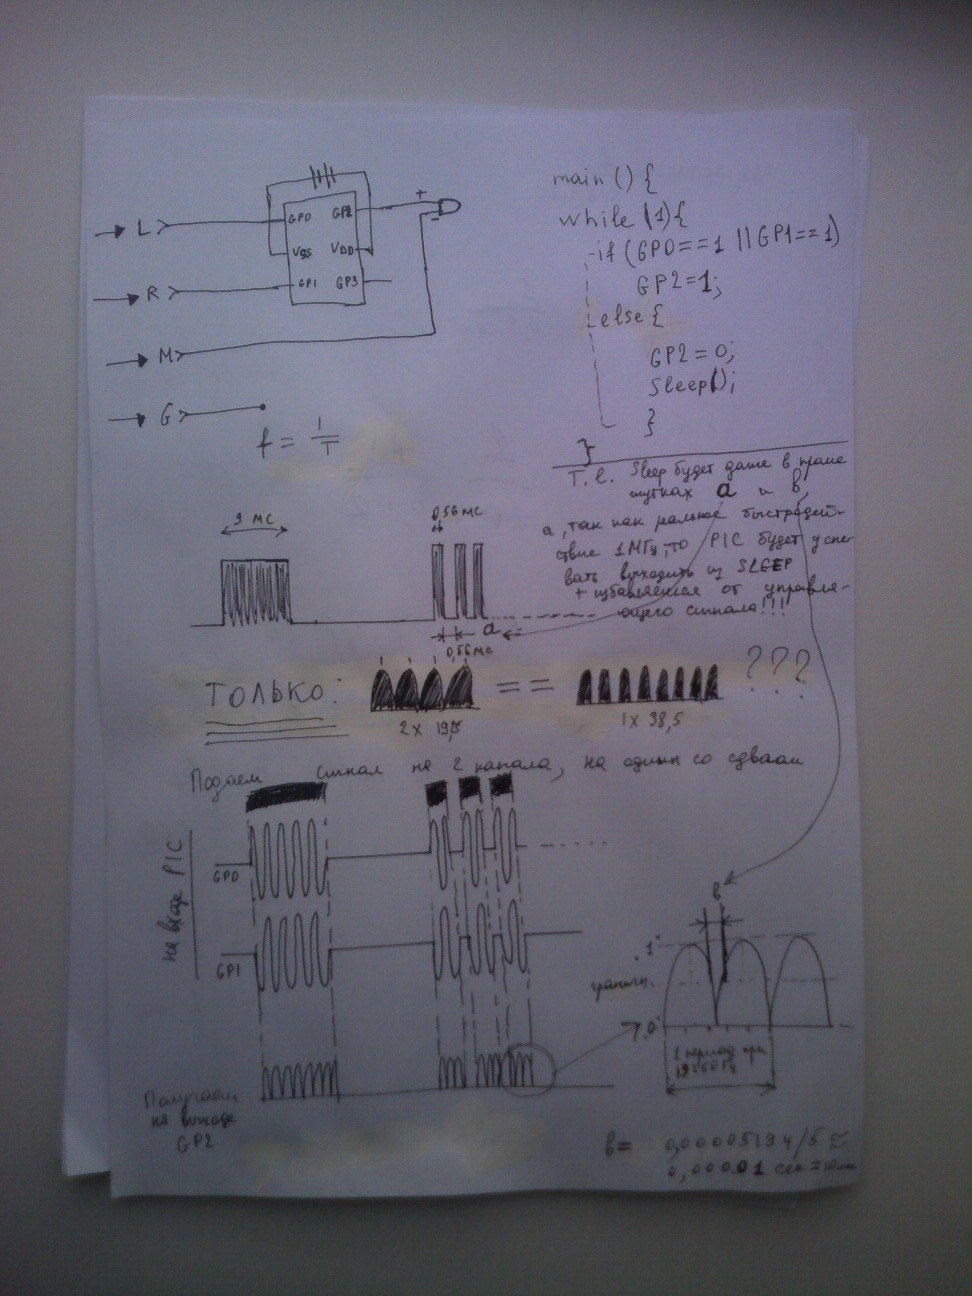 L
R
M
G
GP0
GP2
VSS
VDD
GP1
GP3
+
-
main () {
while (1) {
if (GP0==1 || GP1==1)
GP2=1;
else {
GP2=0;
Sleep();
}
}
f = 1/T
Т.е. Sleep будет даже в проме
жутках a и b,
а, так как реальное быстродей-
ствие 1МГц, то PIC будет успе-
вать выходить из SLEEP
+ избавляемся от управля-
ющего сигнала!!!
9 мс
0,56 мс
a
0,56 мс
ТОЛЬКО:
==
???
2 x 19,25
1 x 38,5
Подаем сигнал на 2 канала, на один со сдвигом
на входе PIC
GP0
GP1
Получаем
на выходе
GP2
b
"1"
граничн.
"0"
1 период при
19250 Гц
b = 0,00005194/5 ≈
0,00001 сек